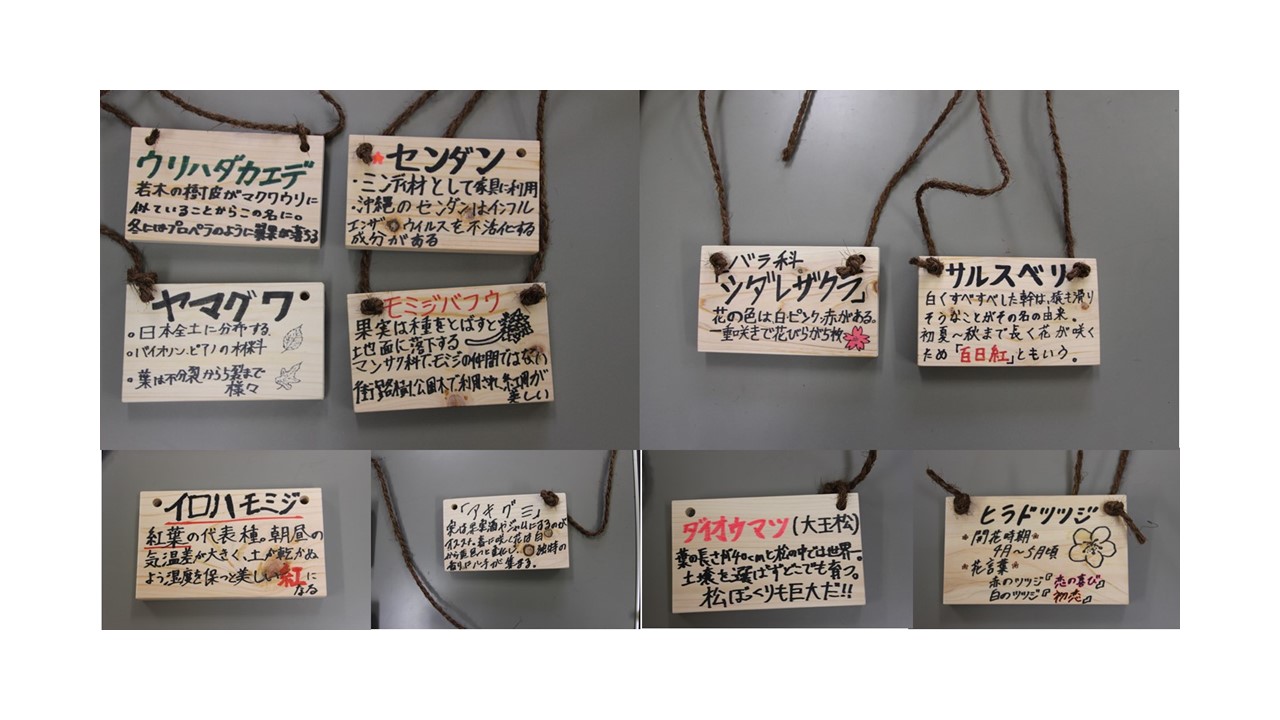 ウリハダカエデ
若木の樹皮がマクワウリに
似ていることからこの名に。
冬にはプロペラのように翼果が落ちる
センダン
・ミンディ材として家具に利用
・沖縄のセンダンはインフル
エンザウイルスを不活化する
成分がある
ヤマグワ
・日本全土に分布する
・バイオリン、ピアノの材料
・葉は不分裂から5裂まで
様々
モミジバフウ
果実は種をとばすと
地面に落下する
マンサク科で、モミジの仲間ではない
街路樹、公園木で利用され、紅葉が
美しい
バラ科
「シダレザクラ」
花の色は白・ピンク・赤がある。
一重咲きで花びらが5枚
サルスベリ
白くすべすべした幹は、猿も滑り
そうなことがその名の由来。
初夏～秋まで長く花が咲く
ため「百日紅」ともいう。
イロハモミジ
紅葉の代表種。朝昼の
気温差が大きく、土が乾かぬ
よう湿度を保つと美しい紅に
なる
「アキグミ」
実は果実酒やジャムにするのが
オススメ。春に咲く花は白
から黄色へと変化し、独特の
ダイオウマツ(大王松)
葉の長さ約40cmと松の中では世界一。
土壌を選ばずどこでも育つ。
松ぼっくりも巨大だ!!
ヒラドツツジ
開花時期
4月～5月頃
花言葉
赤のツツジ『恋の喜び』
白のツツジ『初恋』